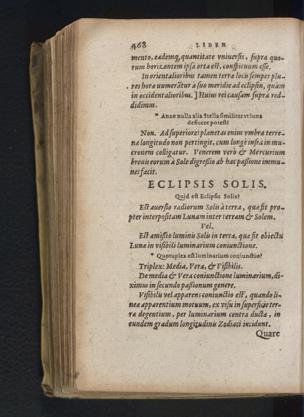 468 LIBER
mento, eademq́; quantitate vniuersis, supra quo-
rum horizontem ipsa orta est, conspicuum esse.
In orientalioribus tamen terræ locis semper plu-
res horæ numerãtur à suo meridie ad eclipsin, quàm
in occidentalioribus.] Huius rei causam supra red-
didimus.
* Anne nulla alia stella similiter vt luna
deficere potest?
Non. Ad superiores planetas enim vmbræ terre-
næ longitudo non pertingit, cum longè infrà in mu-
cronem colligatur. Venerem verò & Mercurium
breuis eorum à Sole digressio ab hac passione immu-
nes facit.
ECLIPSIS SOLIS.
Quid est Eclipsis Solis?
Est auersio radiorum Solis à terra, quæ fit pro-
pter interpositam Lunam inter terram & Solem.
Vel,
Est amissio luminis Solis in terra, quæ fit obiectu
Lunæ in visibili luminarium coniunctione.
* Quotuplex est luminarium coniunctio?
Triplex: Media, Vera, & Visibilis.
De media & Vera coniunctione luminarium, di-
ximus in secundo passionum genere.
Visibilis vel apparens coniunctio est, quando li-
nea apparentium motuum, ex visu in superficie ter-
ræ degentium, per luminarium centra ducta, in
eundem gradum longitudinis Zodiaci incidunt.
Quare